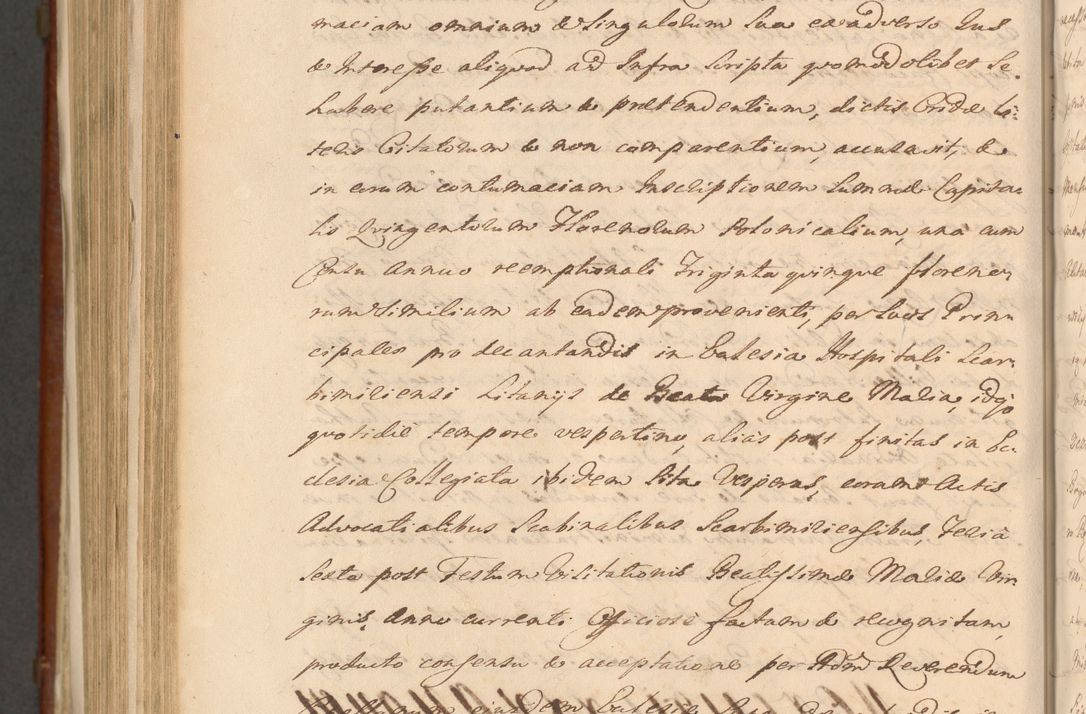 maciam omnium & Singulorum Sua ex adverso Ius
& Interesse aliquod ad Infra Scripta quomodolibet Se
habere putantium & prætendentium, dictis Cridæ la¬
teris Citatorum & non comparentium, accusavit, &
in eorum contumaciam Inscriptionem Summæ Capita¬
lis Quingentorum Florenorum Polonicalium, una cum
Censu Annuo reemptionali Triginta quinque floreno¬
rum similium ab eadem provenienti, per Suos Prin¬
cipales pro decantandis in Eclesia Hospitali Scar¬
bimiriensi Litanijs de Beata Virgine Maria, idq̃
quotidie tempore vespertino, alias post finitas in Ec¬
clesia Collegiata ibidem Sita Vesperas, coram Actis
Advocatialibus Scabinalibus Scarbimiriensibus, Feria
Sexta post Festum Visitationis Beatissimæ Mariæ Vir¬
ginis, Anno currenti Officiose factam & recognitam,
producto consensu & acceptatione per Adm̃ Reverendum
eiusdem Eclesiæ